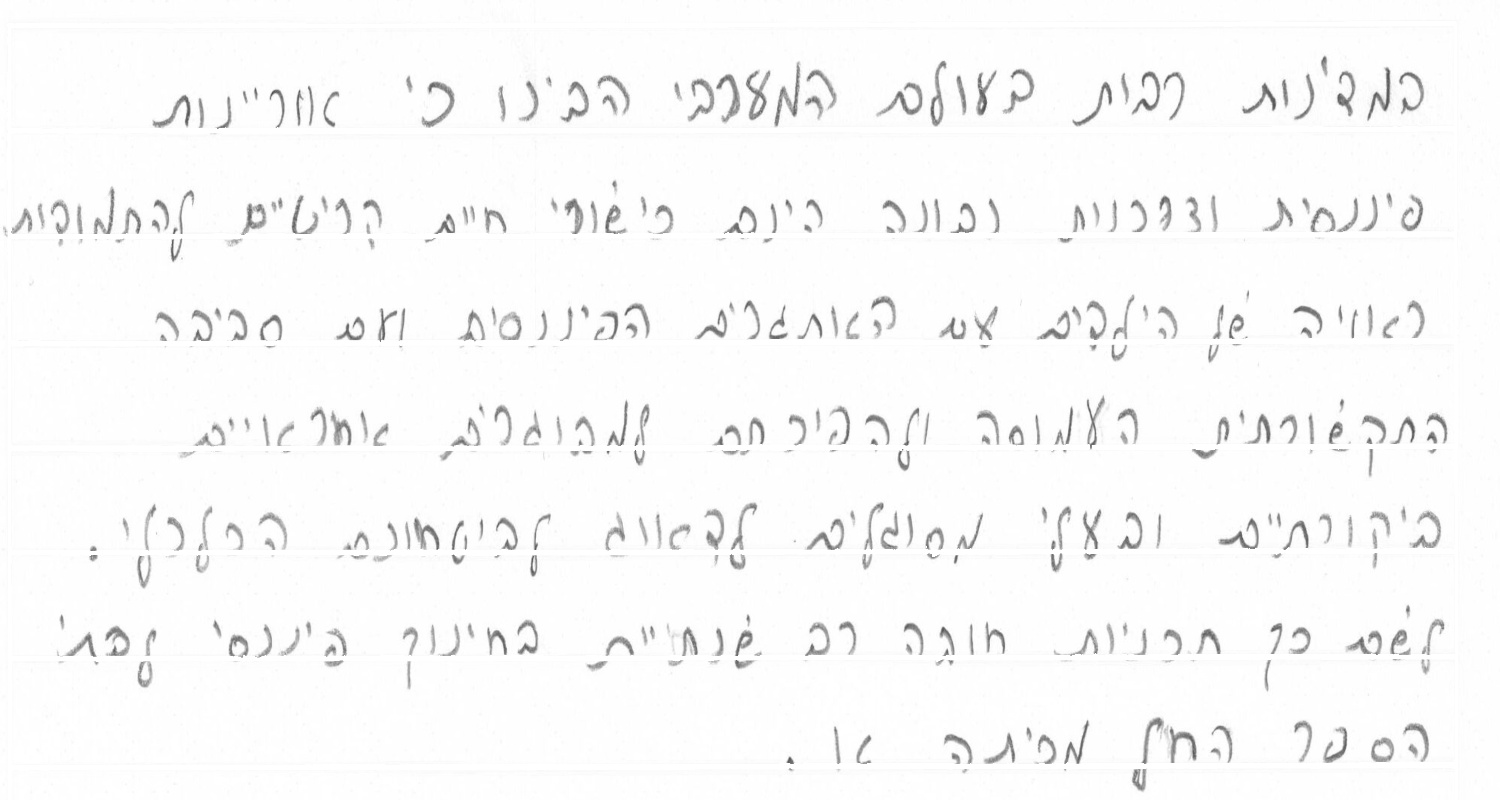 במדינות רבות בעולם המערבי הבינו כי אוריינות
פיננסית וצרכנות נבונה הינם כישורי חיים קריטיים להתמודדות
ראויה של הילדים עם האתגרים הפיננסית ועם סביבה
התקשורתית העמוסה ולהפיכתם למבוגרים אחראויים
ביקורתיים ובעלי מסוגלים לדאוג לביטחונם הכלכלי.
לשם כך תכניות חובה רב שנתיית בחינוך פיננסי לבתי
הספר החל מכיתה או.